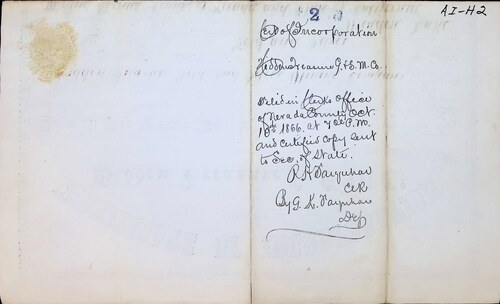 2
AI-H2
Cert of Incorporation
G. & S. M. Co.
Filed in Clerks office
of Nevada County Oct.
1866. at 7 P.M.
and certified copy sent
to Sec. of State.
R H Farquhar
Clk
By G. K. Farquhar
Dep